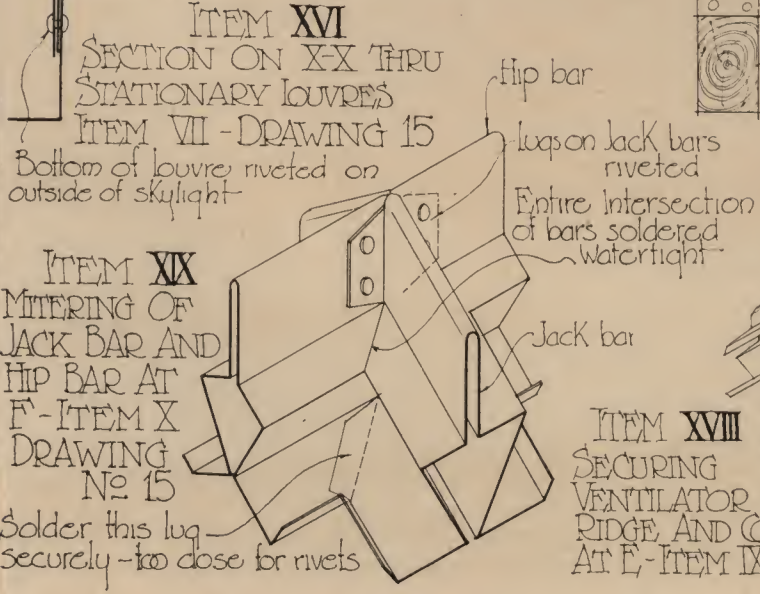 ITEM XVI
SECTION ON X-X THRU
STATIONARY LOUVRES
ITEM VII - DRAWING 15
Bottom of louvre riveted on
outside of skylight
Hip bar
Lugs on Jack bars
riveted
Entire Intersection
of bars soldered
Watertight
Jack bar
ITEM XIX
MITERING OF
JACK BAR AND
HIP BAR AT
F-ITEM X
DRAWING
No 15
Solder this lug
securely - too close for rivets
ITEM XVIII
SECURING
VENTILATOR
RIDGE AND
AT E-ITEM IX